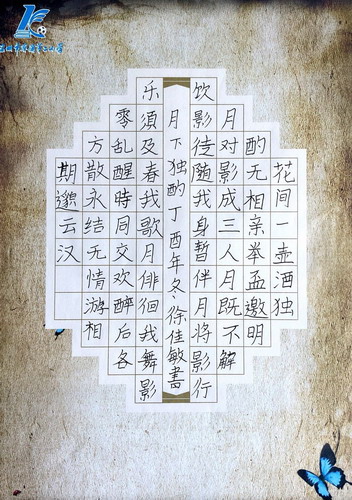 花间一壶酒独
酌无相亲挙盃邀明
月对影成三人月既不解
饮影徒随我身暫伴月将影行
月下独酌丁酉年冬徐佳敏書
乐須及春我歌月徘徊我舞影
零乱醒時同交欢醉后各
分散永结无情游相
期邈云汉